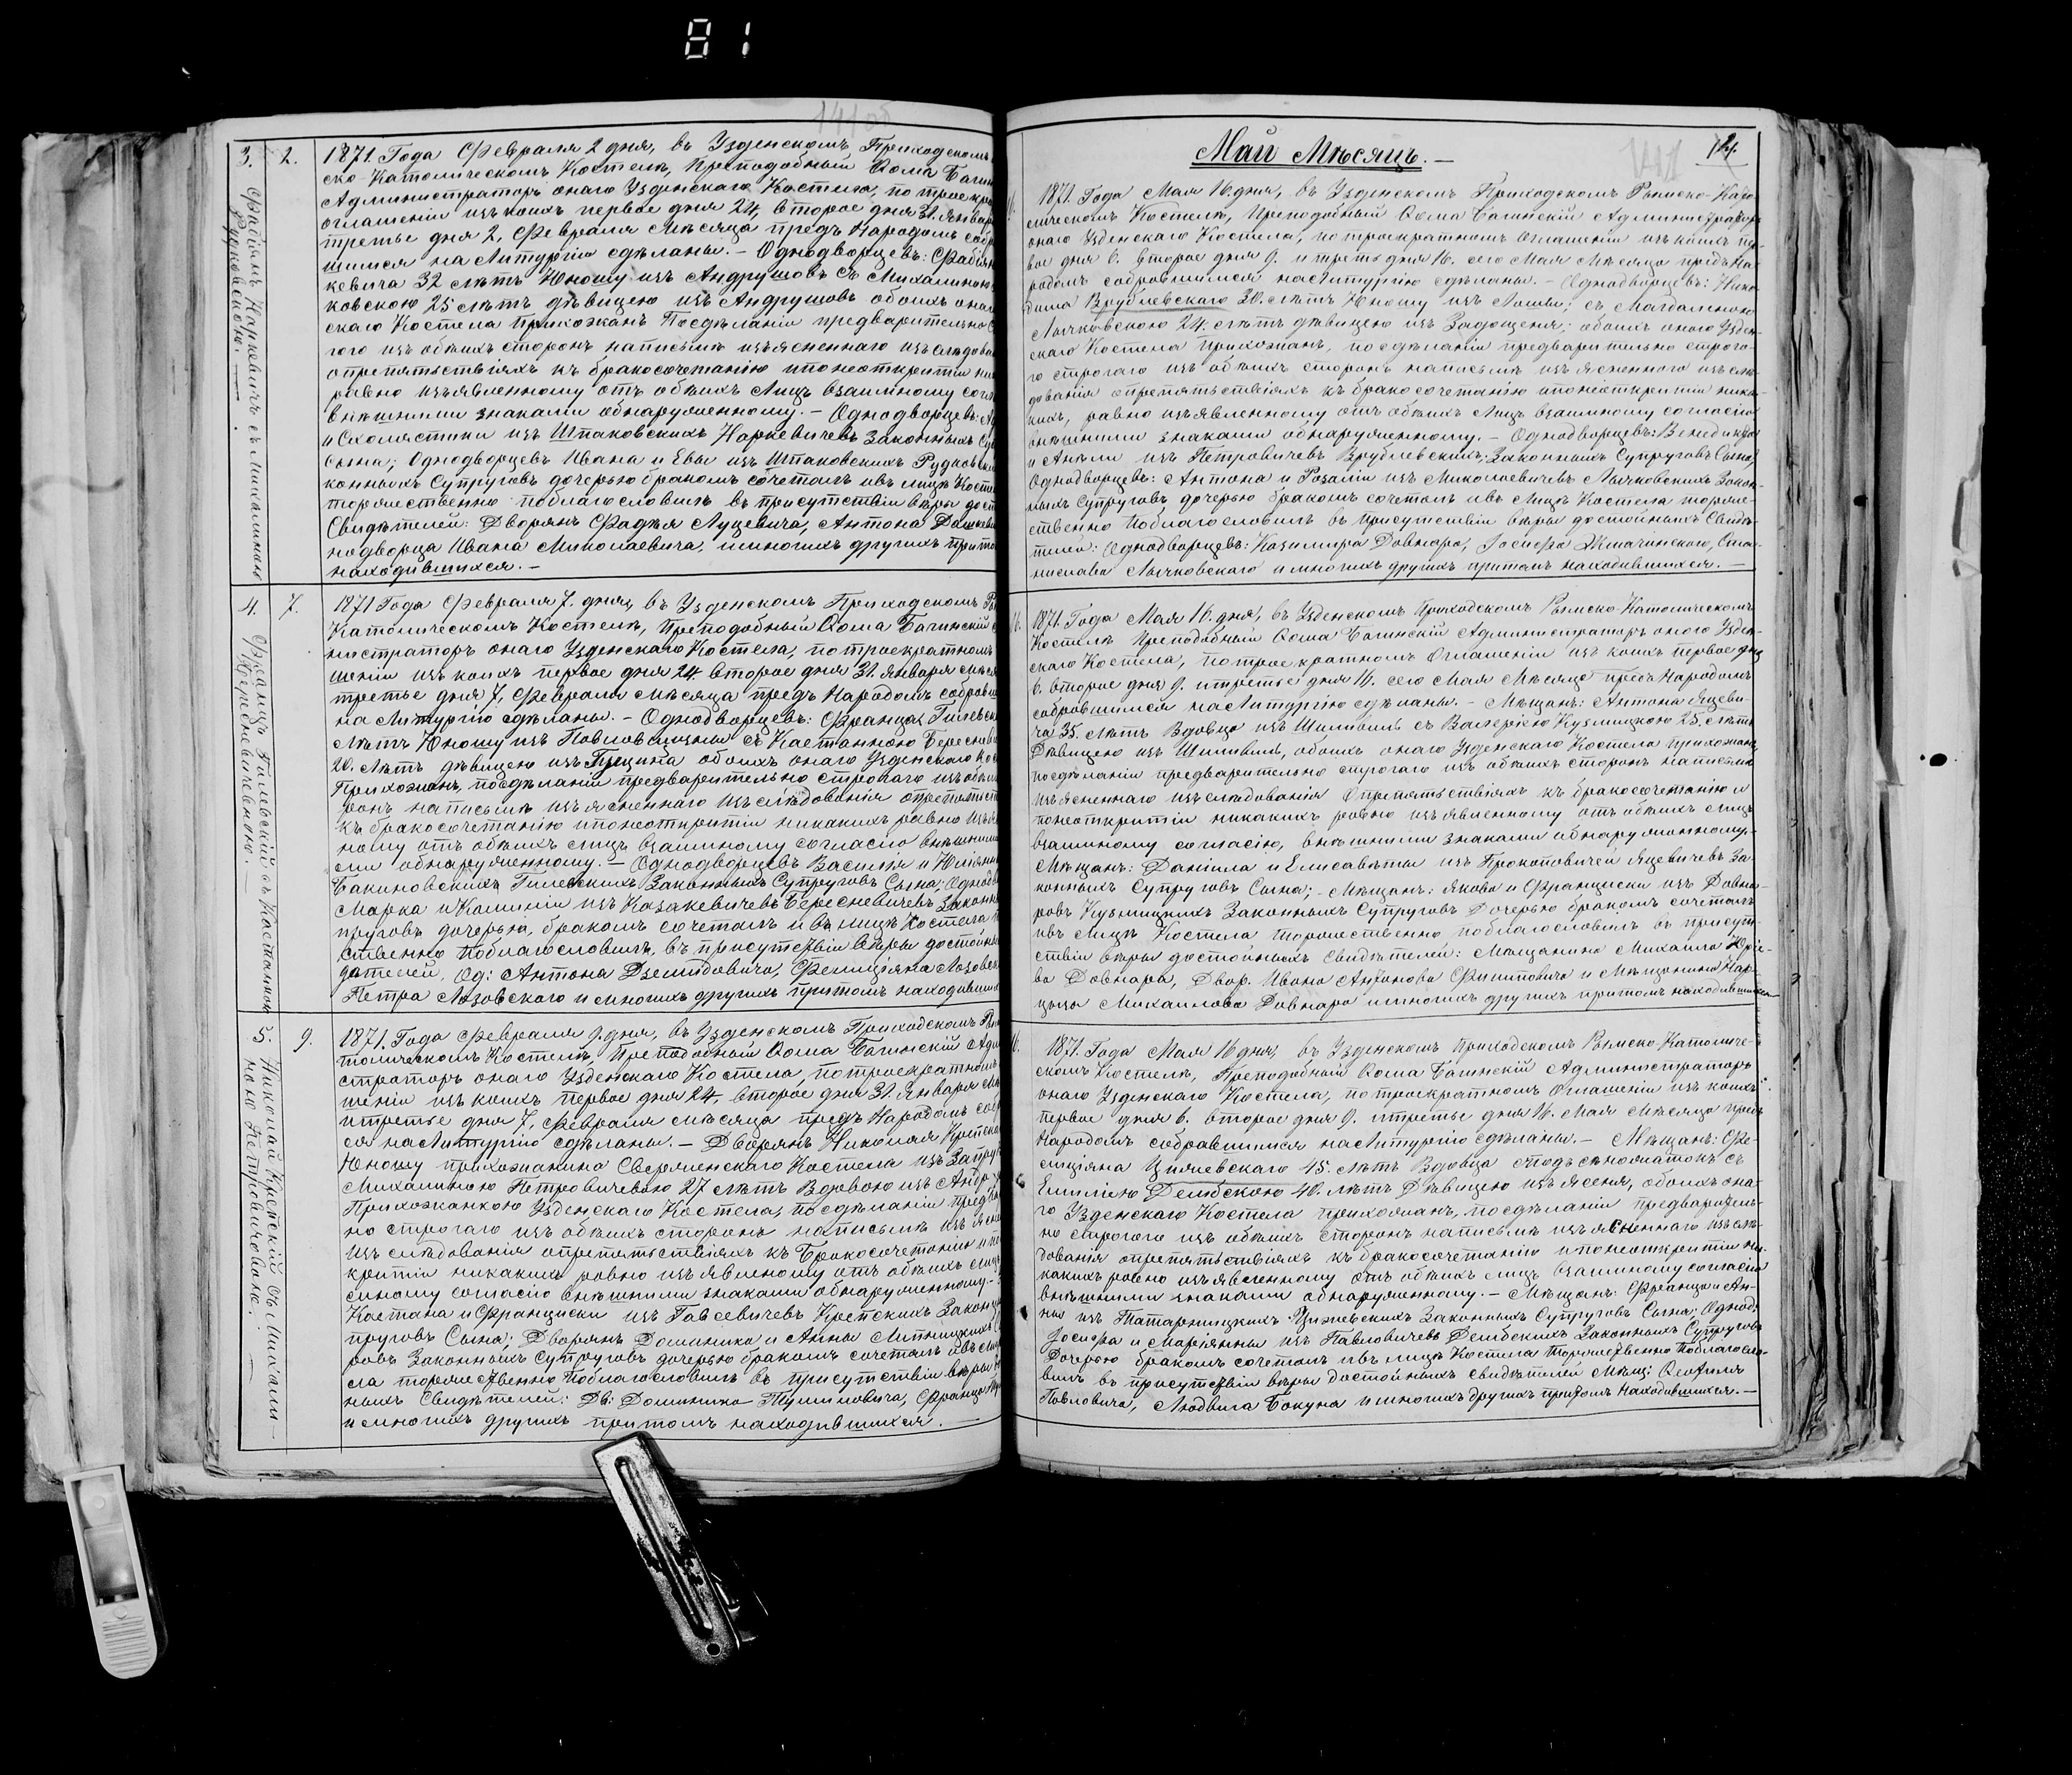 81
3.
2.
Фабіянъ Наркевичъ съ Михалиною
Рудковскою.
1871. Года Февраля 2 дня, въ Узденскомъ Приходскомъ
ско Католическомъ Костелѣ, Преподобный Ѳома Багин
Администраторъ онаго Узденскаго Костела, по троекра
оглашеніи изъ коихъ первое дня 24, второе дня 31. Январ
третье дня 2, Февраля Мѣсяца предъ Народомъ собр
шимся на Литургію сдѣланы. – Однодворцевъ: Фабіян
кевича 32 лѣтъ Юношу изъ Андрушовъ съ Михалиною
ковскою 25 лѣтъ дѣвицею изъ Андрушовъ обоихъ онаг
скаго Костела Прихожанъ Посдѣланіи предварительно с
гого изъ обѣихъ сторонъ написьмѣ изъясненнаго изслѣдова
опрепятствіяхъ къ бракосочетанію ипонеоткрытіи ник
равно изъявленному отъ обѣихъ Лицъ взаимному согл
внѣшними знаками обнаруженному. – Однодворцевъ:
и Схоластики изъ Шпаковскихъ Наркевичевъ Законныхъ Су
Сына; Однодворцевъ Ивана и Евы изъ Шпаковскихъ Рудковски
конныхъ Супруговъ дочерью бракомъ сочеталъ ивъ лицѣ Косте
торжественно поблагословилъ въ присутствіи вѣры дост
Свидѣтелей: Дворянъ Фадѣя Луцевича, Антона Дашкеви
нодворца Ивана Миколаевича, имногихъ другихъ прито
находившихся. –
4.
7.
Францъ Гилевскій съ Каетанною
Бересневичевною.
1871 Года Февраля 7. дня, въ Узденскомъ Приходскомъ Ры
Католическомъ Костелѣ, Преподобный Ѳома Багинскій
нистраторъ онаго Узденскаго Костела, по троекратномъ
шеніи изъ коихъ первое дня 24 второе дня 31. Января мѣся
третье дня 7, Февраля Мѣсяца предъ Народомъ собравш
на Литургію сдѣланы. – Однодворцевъ: Франца Гилевск
лѣтъ Юношу изъ съ Каетанною Береснев
20. лѣтъ дѣвицею изъ обоихъ онаго Узденскаго Кос
Прихожанъ, посдѣланіи предварительно строгаго изъ обѣи
ронъ написьмѣ изъясненнаго изслѣдованія опрепятст
къ бракосочетанію ипонеоткрытіи никакихъ равно изъяв
ному отъ обѣихъ лицъ взаимному согласію внѣшними
ми обнаруженному. – Однодворцевъ Василія и Юліянн
Бакиновскихъ Гилевскихъ Законныхъ Супруговъ Сына; Однодв
Марка и изъ Казакевичевъ Бересневичевъ Законн
пруговъ дочерью, бракомъ сочеталъ ивъ лицѣ Костела
ственно Поблагословилъ, въ присутствіи вѣры достойны
дѣтелей, Од: Антона Дземидовича, Фелиціяна Лазовск
Петра Лазовскаго и многихъ другихъ притомъ находивших
5.
9.
Николай Крепскій съ Михали-
ною Петровичовою.
1871. Года Февраля 9. дня, въ Узденскомъ Приходскомъ Ры
толическомъ Костелѣ, Преподобный Ѳома Багинскій Адм
страторъ онаго Узденскаго Костела, по троекратномъ
шеніи изъ коихъ первое дня 24. второе дня 31. Января мѣ
итретье дня 7, Февраля мѣсяца предъ Народомъ соб
ся на Литургію сдѣланы. – Дворянъ Николая Крепска
Юношу прихожанина Свержинскаго Костела изъ
Михалиною Петровичевою 27 лѣтъ Вдовою изъ Андр
Прихожанкою Узденскаго Костела, посдѣланіи предва
но строгаго изъ обѣихъ сторонъ написьмѣ изъясн
изслѣдованія опрепятствіяхъ къ Бракосочетанію ипо
крытіи никакихъ равно изъявленому отъ обѣихъ лицъ
имному согласію внѣшними знаками обнаруженному. –
Каетана и Франциски изъ Гавсевичевъ Крепскихъ Законн
пруговъ Сына; Дворянъ Доминика и Анны Литницкихъ
ровъ Законныхъ Супруговъ дочерью бракомъ сочеталъ ивъ лиц
ла торжественно Поблагословилъ въ присутствіи вѣры
ныхъ Свидѣтелей: Дв: Доминика Туминовича, Франца
и многихъ другихъ притомъ находившихся.
Май Мѣсяцъ. –
1871. Года Мая 16. дня, въ Узденскомъ Приходскомъ Рымско-Като-
лическомъ Костелѣ, Преподобный Ѳома Багинскій Администраторъ
онаго Узденскаго Костела, по троекратномъ оглашеніи изъ коихъ пер-
вое дня 6. второе дня 9. итретье дня 16. сего Мая Мѣсяца предъ На-
родомъ собравшимся на Литургію сдѣланы. – Однодворцевъ: Нико-
дима Врублевскаго 30. лѣтъ Юношу изъ Лоши; съ Магдаленою
Лычковскою 24. лѣтъ дѣвицею изъ Задощеня; обоихъ онаго Узден-
скаго Костела прихожанъ, посдѣланіи предварительно строго-
го строгаго изъ обѣихъ сторонъ написьмѣ изъясненного изслѣ-
дованія опрепятствіяхъ къ бракосочетанію ипонеоткрытіи ника-
кихъ, равно изъявленному отъ обѣихъ Лицъ взаимному согласію
внѣшними знаками обнаруженному. – Однодворцевъ: Венедикта
и Анели изъ Петровичевъ Врублевскихъ, Законныхъ Супруговъ Сына,
Однодворцевъ: Антона и Розаліи изъ Миколаевичевъ Лычковскихъ Закон-
ныхъ Супруговъ, дочерью бракомъ сочеталъ ивъ Лицѣ Костела торже-
ственно Поблагословилъ въ присутствіи вѣры достойныхъ Свидѣ-
телей: Однодворцевъ: Казимира Довнара, Іосифа Жмачинскаго, Ста-
нислава Лычковскаго имногихъ другихъ притомъ находившихся. –
1871. Года Мая 16. дня, въ Узденскомъ Приходскомъ Рымско-Католическомъ
Костелѣ Преподобный Ѳома Багинскій Администраторъ онаго Узден-
скаго Костела, по троекратномъ Оглашеніи изъ коихъ первое дня
6. второе дня 9. итретье дня 16. сего Мая Мѣсяца предъ Народомъ
собравшимся на Литургію сдѣланы. – Мѣщанъ: Антона Яцеви-
ча 35. лѣтъ Вдовца изъ съ Валеріею Кузмицкою 25. лѣтъ
Дѣвицею изъ обоихъ онаго Узденскаго Костела прихожанъ,
посдѣланіи предварительно строгаго изъ обѣихъ сторонъ написьмѣ
изъясненнаго изслѣдованія опрепятствіяхъ къ бракосочетанію и
понеоткрытіи никакихъ равно изъявленному отъ обѣихъ лицъ
взаимному согласію, внѣшними знаками обнаруженному. –
Мѣщанъ: Даніила и Елисаветы изъ Прокоповичей Яцевичевъ За-
конныхъ Супруговъ Сына; – Мѣщанъ: Якова и Франциски изъ Довна-
ровъ Кузмицкихъ Законныхъ Супруговъ Дочерью бракомъ сочеталъ
ивъ лицѣ Костела торжественно поблагословилъ въ присут-
ствіи вѣры достойныхъ Свидѣтелей: Мѣщанина Михаила Юріе-
ва Довнара, Двор. Ивана Антонова Филиповича и Мѣщанина Нар-
цыза Михайлова Довнара имногихъ другихъ притомъ находившихся
1871. Года Мая 16 дня, въ Узденскомъ Приходскомъ Рымско-Католиче-
скомъ Костелѣ, Преподобный Ѳома Багинскій Администраторъ
онаго Узденскаго Костела, по троекратномъ Оглашеніи изъ коихъ
первое дня 6. второе дня 9. итретье дня 16. Мая Мѣсяца предъ
Народомъ собравшимся на Литургію сдѣланы. – Мѣщанъ: Фе-
лиціяна 45. лѣтъ Вдовца съ
Емиліею Дембскою 40. лѣтъ Дѣвицею изъ Ясеня, обоихъ она-
го Узденскаго Костела прихожанъ, посдѣланіи предваритель-
но строгаго изъ обѣихъ сторонъ написьмѣ изъясненнаго изслѣ-
дованія опрепятствіяхъ къ бракосочетанію ипонеоткрытіи ни-
какихъ равно изъявленному отъ обѣихъ лицъ взаимному согласію
внѣшними знаками обнаруженному. – Мѣщанъ: Франца и Ан-
ны изъ Татарницкихъ Законныхъ Супруговъ Сына; Однод:
Іосифа и Маріянны изъ Павловичевъ Дембскихъ Законныхъ Супруговъ
Дочерью бракомъ сочеталъ ивъ лицѣ Костела Торжественно Поблагосло-
вилъ въ присутствіи вѣры достойныхъ свидѣтелей Мѣщ:
Павловича, Людвига Бокуна имногихъ другихъ притомъ находившихся. –